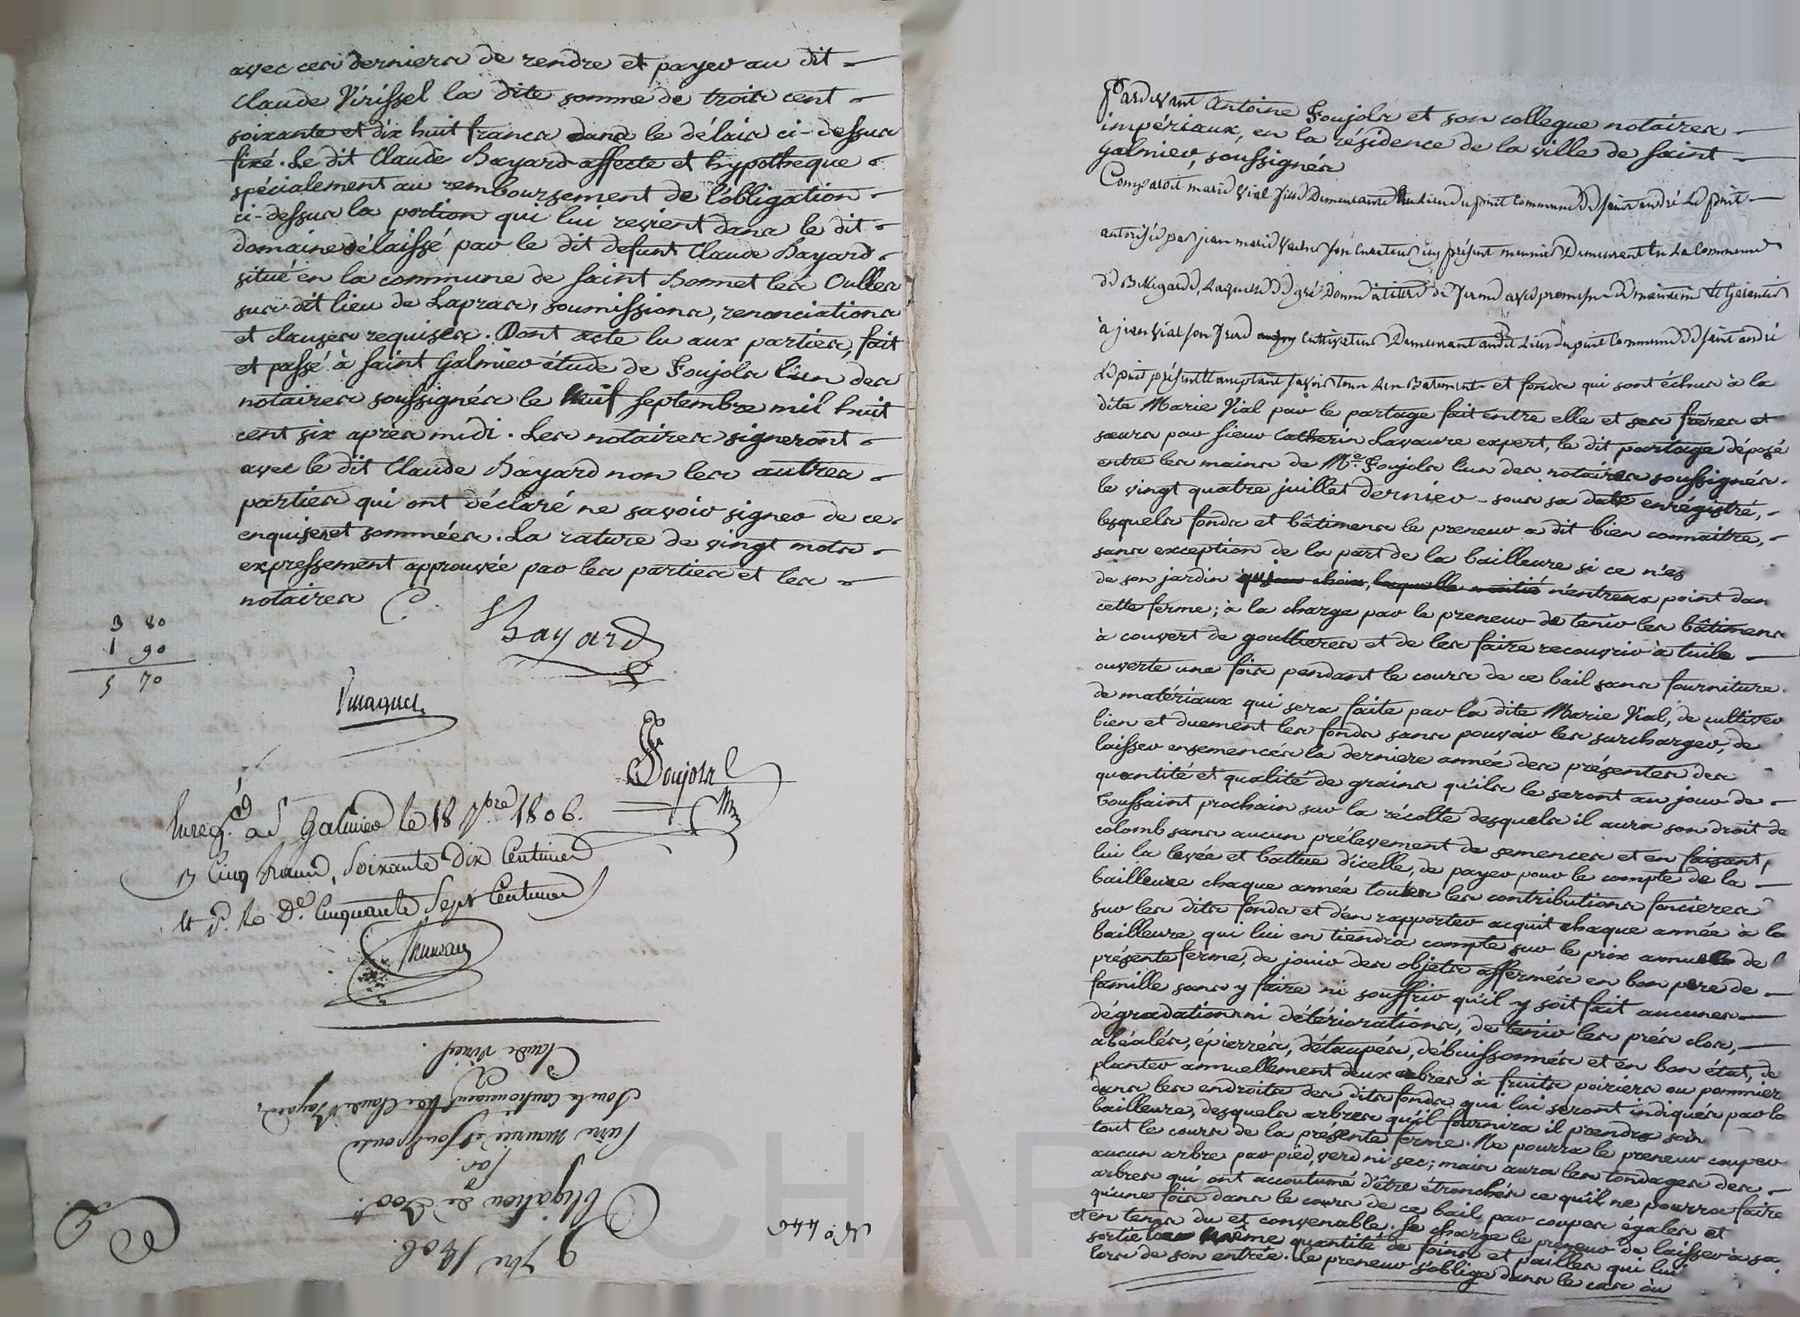 avec ces derniers de rendre et payer au dit
Claude Virissel la dite somme de trois cent
soixante et dix huit francs dans le délais ci-dessus
fixé. Le dit Claude Bayard affecte et hypotheque
spécialement au remboursement de l'obligation
ci-dessus la portion qui lui revient dans le dit
domaine délaissé par le dit defunt Claude Bayard
situé en la commune de saint Bonnet les Oulles
sus dit lieu de Lapras, soumissions, renonciations
et clauses requises. Dont acte lu aux parties, fait
et passé à saint Galmier étude de Foujols l'un des
notaires soussignés le neuf septembre mil huit
cent six après midi. Les notaires signeront
avec le dit Claude Bayard non les autres
parties qui ont déclaré ne savoir signer de ce
enquises et sommées. La rature de vingt mots
expressement approuvée par les parties et les
notaires
3 80
1 90
5 70
Bayard
Foujols
Enreg. à St Galmier le 18 7bre 1806.
cinq francs, soixante dix centimes
cinquante sept centimes
Claude
Sous le cautionnement de Claude Bayard
Obligation de
par
9 7bre 1806.
N.o 446
Pardevant Antoine Foujols et son collegue notaires
impériaux, en la résidence de la ville de saint
Galmier, soussignés
Comparoit marie Vial fille Demeurante au lieu du puit commune de saint andré Le puit
autorisée par jean marie son curateur icy présent meunier Demeurant en La Commune
de Bellegarde, Laquelle de gré Donne à titre de ferme avec promesse de maintenir et Garantir
à jean Vial son frere cultivateur Demeurant audit Lieu du puit Commune de saint andré
Le puit présent et acceptant savoir tous Les Batiments et fonds qui sont échus à la
dite Marie Vial par le partage fait entre elle et ses frères et
sœurs par sieur Catherin Lavaure expert, le dit partage déposé
entre les mains de Me. Foujols l'un des notaires soussignés
le vingt quatre juillet dernier sous sa date enrégistré,
lesquels fonds et bâtimens le preneur a dit bien connaitre,
sans exception de la part de la bailleuse si ce n'es
de son jardin n'entrera point dans
cette ferme; à la charge par le preneur de tenir les bâtimens
à couvert de gouttieres et de les faire recouvrir à tuile
ouverte une fois pendant le cours de ce bail sans fourniture
de matériaux qui sera faite par la dite Marie Vial, de cultiver
bien et duement les fonds sans pouvoir les surcharger, de
laisser ensemencés la derniere année des présentes des
quantité et qualité de grains qu'ils le seront au jour de
Toussaint prochain sur la récolte desquels il aura son droit de
colomb sans aucun prélevement de semences et en faisant
lui la levée et battue d'icelle, de payer pour le compte de la
bailleuse chaque année toutes les contributions foncieres
sur les dits fonds et d'en rapporter acquit chaque année à la
bailleuse qui lui en tiendra compte sur le prix annuelle de
présente ferme, de jouir des objets affermés en bon pere de
famille sans y faire ni souffrir qu'il y soit fait aucunes
dégradations ni détériorations, de tenir les prés clos,
abéalés, épierrés, détaupés, débuissonnés et en bon état, de
planter annuellement deux arbres à fruits poiriers ou pommier
dans les endroits des dits fonds qui lui seront indiqués par la
bailleuse, desquels arbres qu'il fournira il prendra soin
tout le cours de la présente ferme. Ne pourra le preneur couper
aucun arbre par pied, verd ni sec; mais aura les tondages des
arbres qui ont accoutumé d'être étronchés ce qu'il ne pourra faire
qu'une fois dans le cours de ce bail par coupes égales et
et en tems du et convenable. Se charge le preneur de laisser à sa
sortie la même quantité de foins et pailles qui lui
lors de son entrée. Le preneur s'oblige dans le cas où